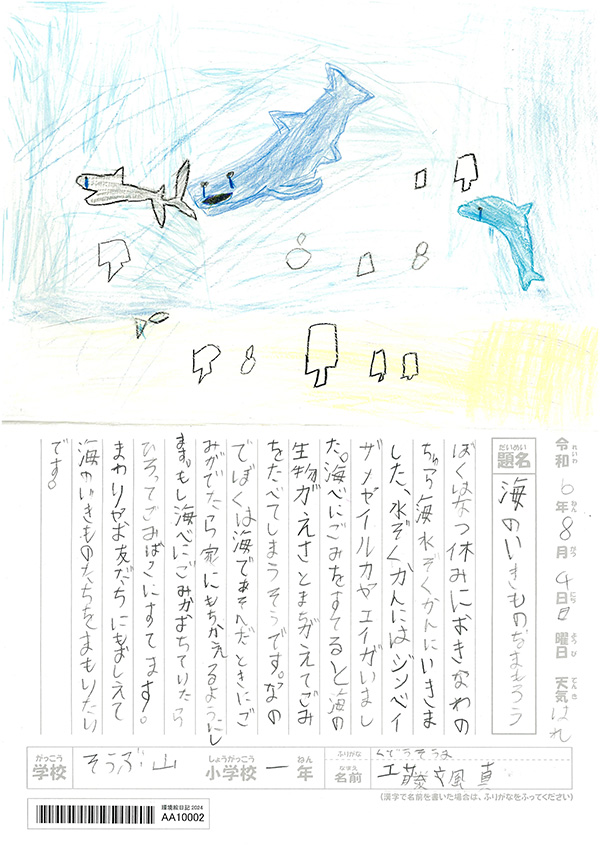 令和6年8月4日日曜日 天気 はれ
れいわ ねん がつ にち ようび てんき
だいめい
題名 海のいきものおまもろう
ぼくはなつ休みにおきなわの
ちゅら海水ぞくかんにいきま
した、水ぞくかんにはジンベイ
ザメやイルカヤエイがいまし
た。海べにごみをすてると海の
生物がえさとまちがえてごみ
をたべてしまうそうです。なの
でぼくは海であそんだときにご
みがでたら家にもちかえるようにし
ます。もし海べにごみがおちていたら
ひろってごみばこにすてます。
まわりやお友だちにもおしえて
海のいきものたちをまもりたい
です。
がっこう しょうがっこう ねん ふりがな くどうそうま
学校 そうぶ山 小学校 一 年 なまえ 名前 工藤颯真
(漢字で名前を書いた場合は、ふりがなをふってください)
環境絵日記2024
AA10002